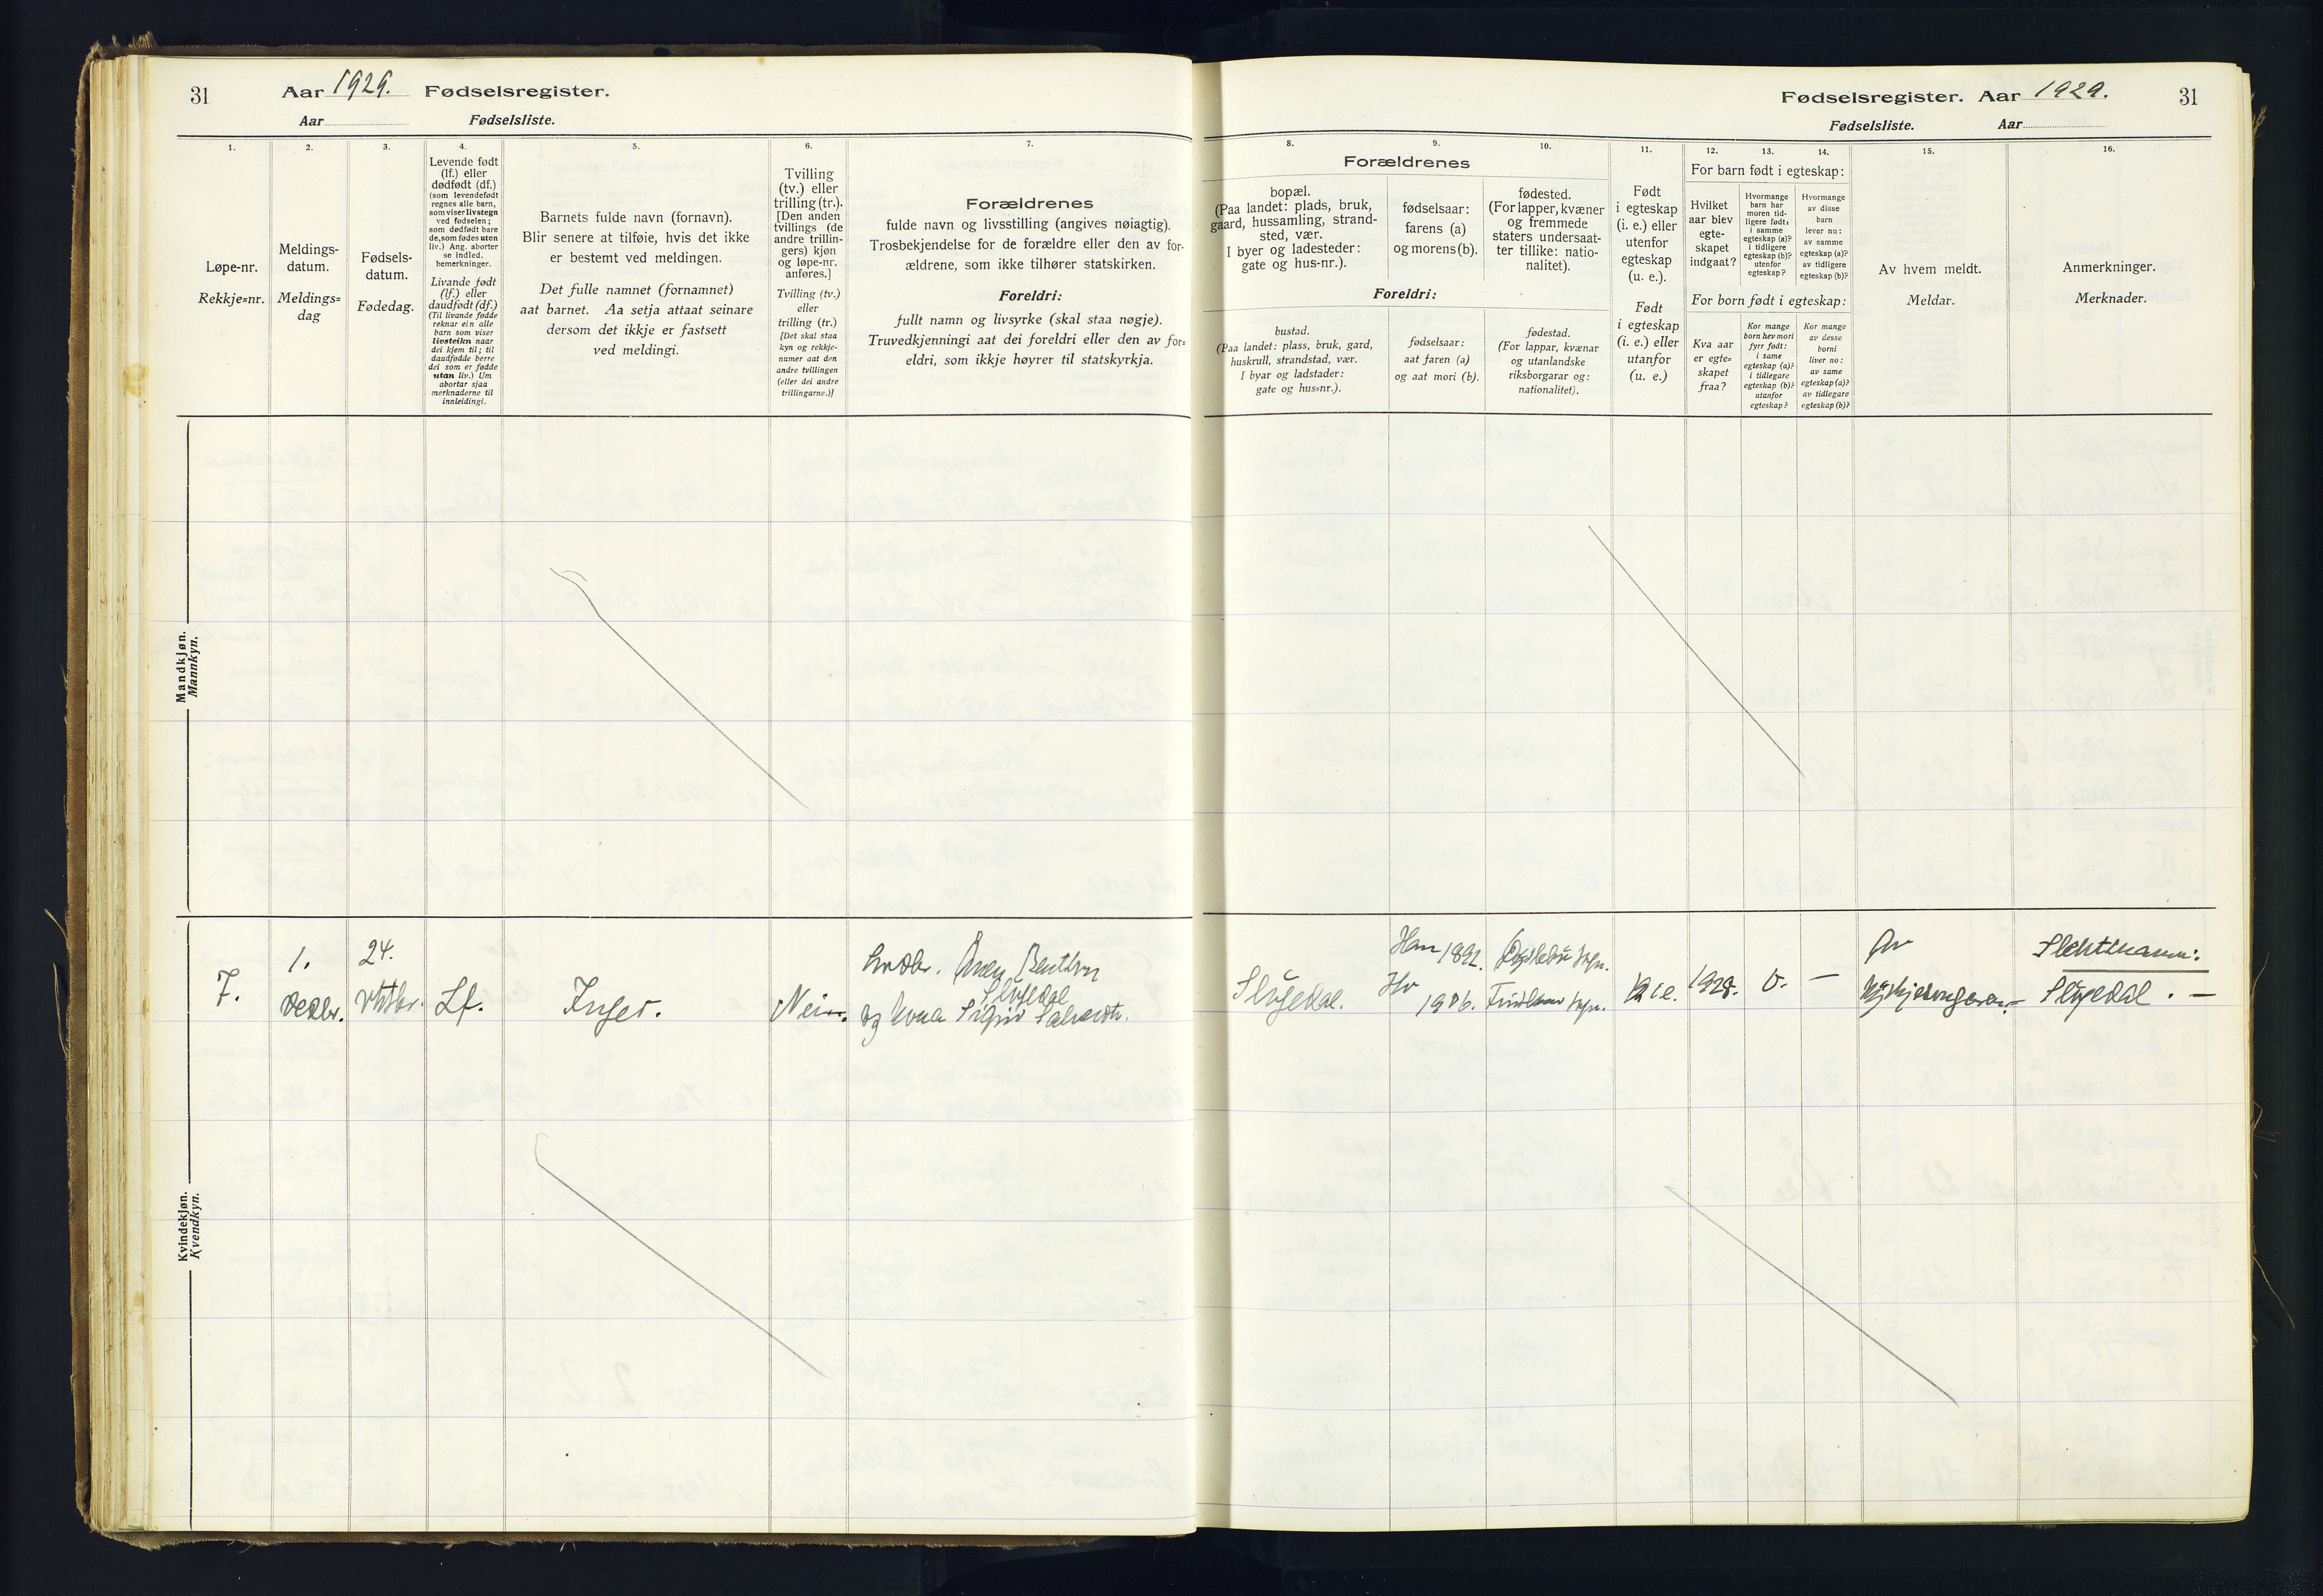 31
Aar 1929. Fødselsregister.
Aar Fødselsliste.
1.
Løpe-nr.
Rekkje=nr.
2.
Meldings-
datum.
Meldings=
dag
3.
Fødsels-
datum.
Fødedag.
4.
Levende født
(lf.) eller
dødfødt (df.)
(som levendefødt
regnes alle barn,
som viser livstegn
ved fødselen;
som dødfødt bare
de, som fødes uten
liv.) Ang. aborter
se indled.
bemerkninger.
Livande født
(lf.) eller
daudfødt (df.)
(Til livande fødde
reknar ein alle
barn som viser
livsteikn naar
dei kjem til; til
daudfødde berre
dei som er fødde
utan liv.) Um
abortar sjaa
merknaderne til
innleidingi.
5.
Barnets fulde navn (fornavn).
Blir senere at tilføie, hvis det ikke
er bestemt ved meldingen.
Det fulle namnet (fornamnet)
aat barnet. Aa setja attaat seinare
dersom det ikkje er fastsett
ved meldingi.
6.
Tvilling
(tv.) eller
trilling (tr.).
[Den anden
tvillings (de
andre trillin-
gers) kjøn
og løpe-nr.
anføres.]
Tvilling (tv.)
eller
trilling (tr.)
[Det skal staa
kyn og rekkje-
numer aat den
andre tvillingen
(eller dei andre
trillingarne.)]
7.
Forældrenes
fulde navn og livsstilling (angives nøiagtig).
Trosbekjendelse for de forældre eller den av for-
ældrene, som ikke tilhører statskirken.
Foreldri:
fullt namn og livsyrke (skal staa nøgje).
Truvedkjenningi aat dei foreldri eller den av for=
eldri, som ikkje høyrer til statskyrkja.
Mandkjøn.
Mannkyn.
7.
1.
24.
Lf.
Inger.
Nei
Kvindekjøn.
Kvendkyn.
Fødselsregister. Aar 1929.
31
Fødselsliste. Aar
8.
Forældrenes
bopæl.
(Paa landet: plads, bruk,
gaard, hussamling, strand-
sted, vær.
I byer og ladesteder:
gate og hus-nr.).
Foreldri:
bustad.
(Paa landet: plass, bruk, gard,
huskrull, strandstad, vær.
I byar og ladstader:
gate og hus=nr.).
9.
fødselsaar:
farens (a)
og morens (b).
fødselsaar:
aat faren (a)
og aat mori (b).
10.
fødested.
(For lapper, kvæner
og fremmede
staters undersaat-
ter tillike: natio-
nalitet).
fødestad.
(For lappar, kvænar
og utanlandske
riksborgarar og:
nationalitet).
11.
Født
i egteskap
(i. e.) eller
utenfor
egteskap
(u. e.).
Født
i egteskap
(i. e.) eller
utanfor
(u. e.)
12.
For barn født i egteskap:
Hvilket
aar blev
egte-
skapet
indgaat?
For born født i egteskap:
Kva aar
er egte=
skapet
fraa?
13.
Hvormange
barn har
moren tid-
ligere født:
i samme
egteskap (a)?
i tidligere
egteskap (b)?
utenfor
egteskap?
Kor mange
born hev mori
fyrr født:
i same
egteskap (a)?
i tidlegare
egteskap (b)?
utanfor
egteskap?
14.
Hvormange
av disse
barn
lever nu:
av samme
egteskap (a)?
av tidligere
egteskap (b)?
Kor mange
av desse
borni
liver no:
av same
egteskap (a)?
av tidlegare
egteskap (b)?
15.
Av hvem meldt.
Meldar.
16.
Anmerkninger.
Merknader.
1892.
1906.
1928.
0.